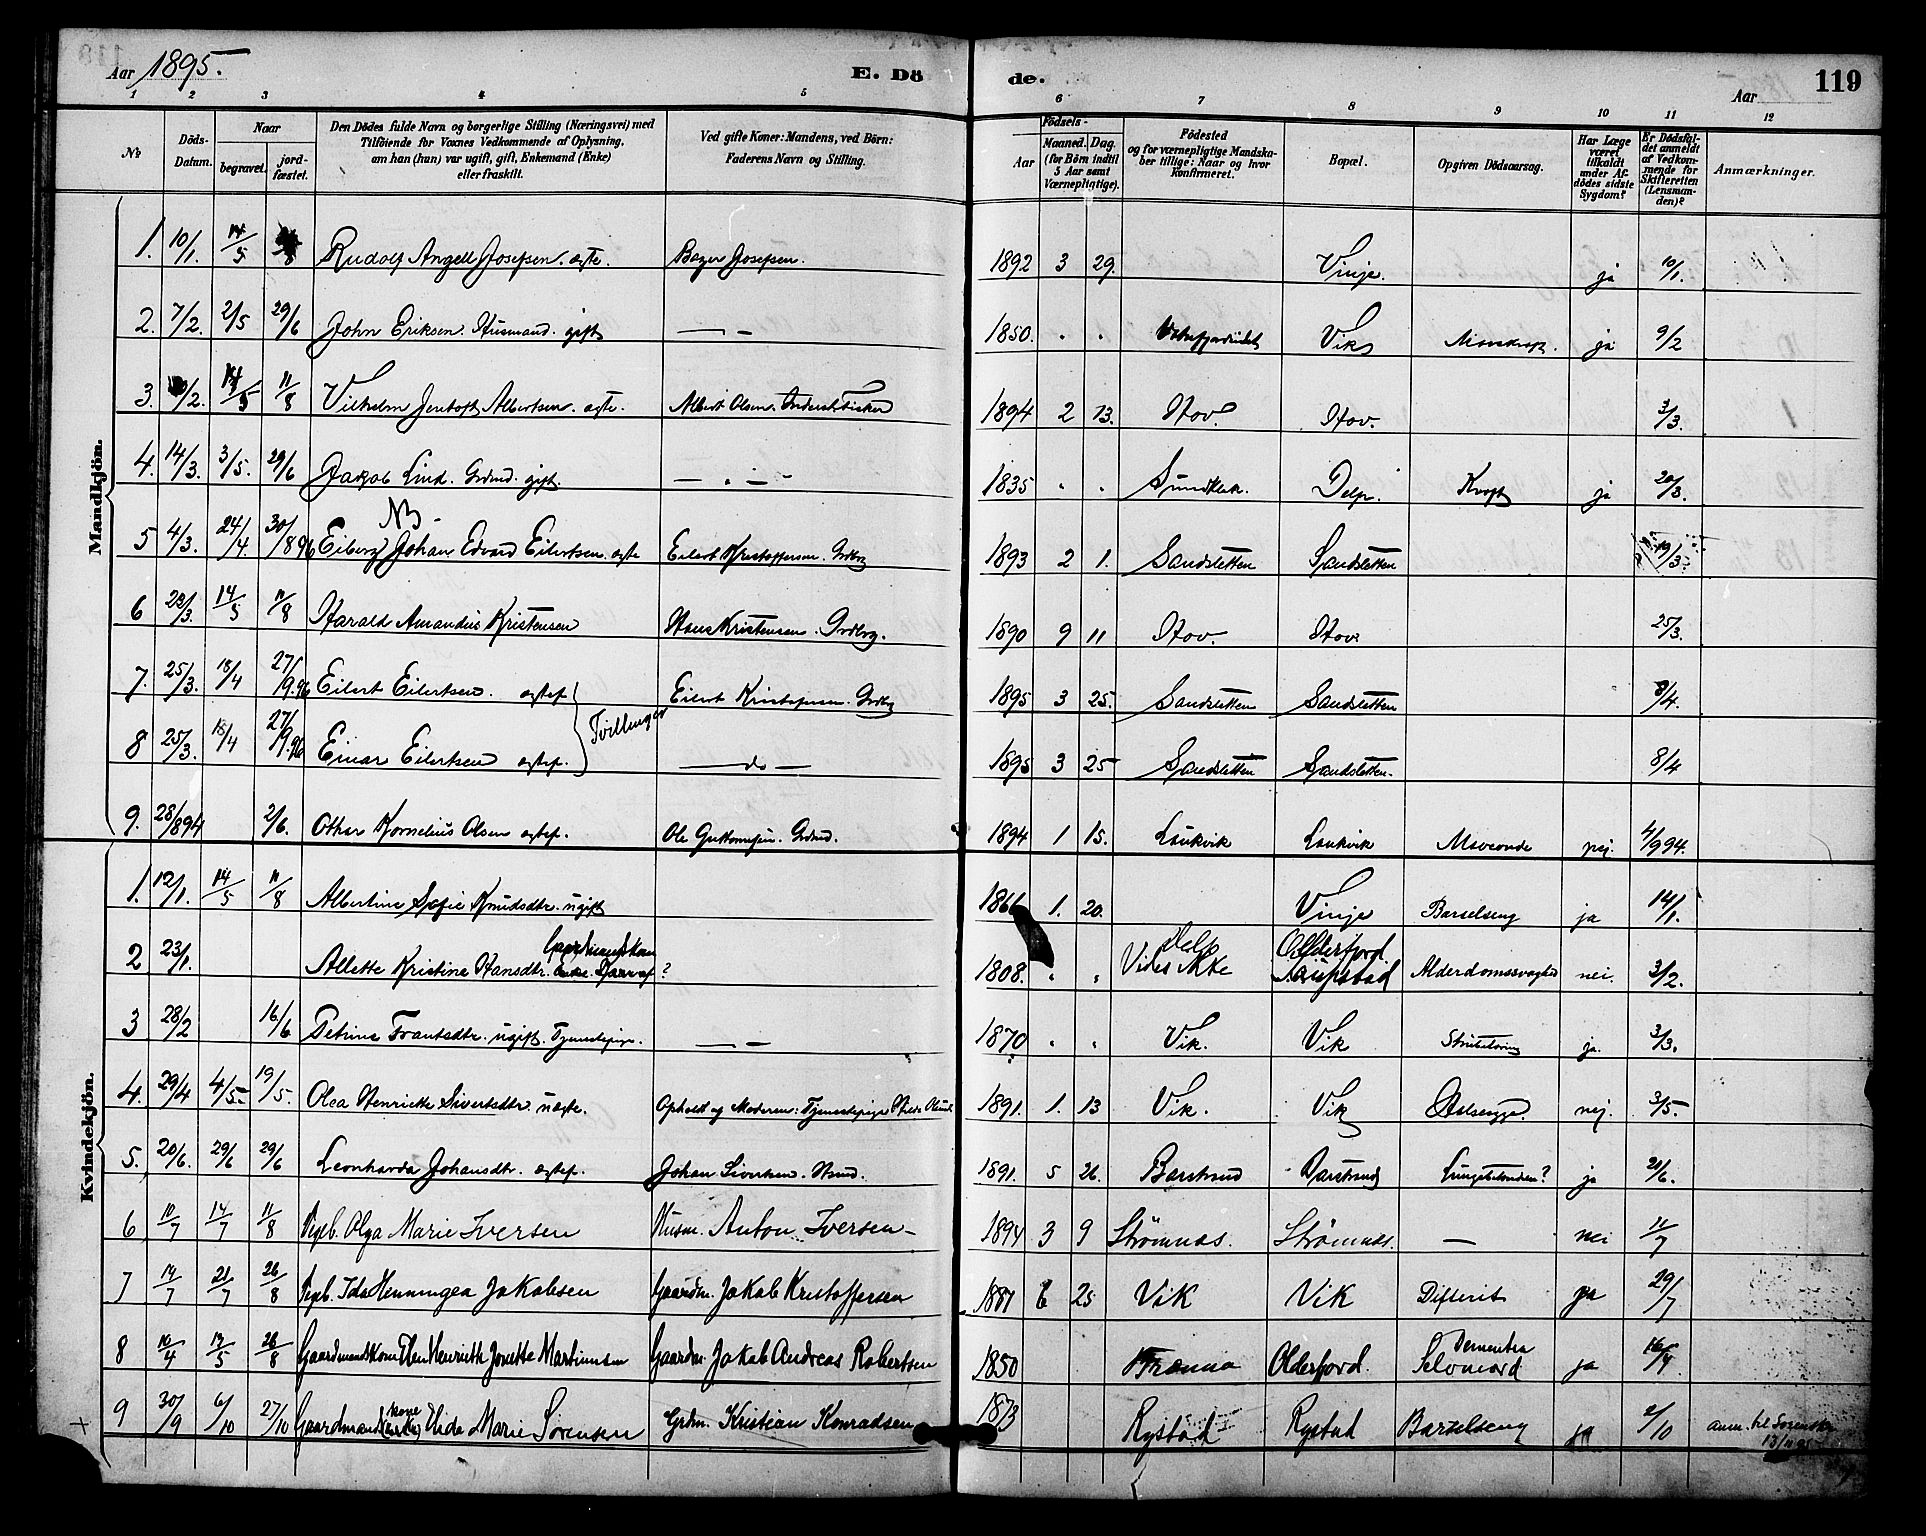 Aar 1895.
E. Dö
de.
Aar
119
1 2 3 4 5 6 7 8 9 10 11 12
№
Döds-Datum.
Naar
begravet.
jord-fæstet.
Den Dödes fulde Navn og borgerlige Stilling (Næringsvei) med
Tilföiende for Voxnes Vedkommende af Oplysning,
om han (hun) var ugift, gift, Enkemand (Enke)
eller fraskilt.
Ved gifte Koner: Mandens, ved Börn:
Faderens Navn og Stilling.
Födsels-
Aar
Maaned. Dag.
(for Börn indtil
5 Aar samt
Værnepligtige).
Födested
og for værnepligtige Mandska-
ber tillige: Naar og hvor
Konfirmeret.
Bopæl.
Opgiven Dödsaarsag.
Har Læge
været
tilkaldt
under Af-
dödes sidste
Sygdom?
Er Dödsfal-
det anmeldt
af Vedkom-
mende for
Skifteretten
(Lensman-
den)?
Anmærkninger.
Mandkjön.
1. 10/1. 14/5 Rudolf Angell Josefsen. ægte. Josefsen. 1892 3 29. Vinje. ja 10/1.
2. 7/2. 2/5 29/6 John Eriksen. Husmand. gift — 1850. " " Vik ja 9/2
3. /2. 14/5 11/8 Vilhelm Jentoft Albertsen. ægte. Albert Olsen. Fisker 1894 2 13. Hov. Hov. 3/3.
4. 14/3. 3/5. 29/6 Jakob Lind. Grdmd. gift. — " — 1835 " " Sundklak. Delp. Kræft ja 20/3.
NB.
5 4/3. 24/4. 30/8 96 Eiberg Johan Edvard Eilertsen. ægte Eilert Kristoffersen. Grdbrg 1893 2 1. Sandsletten Sandsletten 19/3.
6 23/3. 14/5 11/8 Harald Amandus Kristensen Hans Kristensen. Grdbrg. 1890 9 11 Hov. Hov. 25/3.
7. 25/3. 18/4 27/9.96 Eilert Eilertsen. ægtef. Tvillinger Eilert Kristofersen. Grdbrg 1895 3 25. Sandsletten Sandsletten 8/4.
8 25/3. 18/4 27/9.96 Einar Eilertsen ægtef. — do — 1895 3 25 Sandsletten Sandsletten. 8/4
9. 28/8 94 2/6. Othar Kornelius Olsen ægtef. Ole Guttormsen. Grdmd. 1894 1 15. Laukvik Laukvik Maveonde nej. 4/9 94.
Kvindekjön.
1. 12/1. 14/5 11/8 Albertine Sofie Knudsdtr. ugift 1866 1. 20. Vinje Barselseng ja 14/1.
2 23/1. Allette Kristine Hansdtr. Gaardmandskone ? 1808. " " Vides ikke Delp Olderfjord Laupstad Alderdomssvaghed nei. 3/2.
3 28/2 16/6 Petrine Frantsdtr. ugift. Tjenestepige. — 1870 " " Vik. Vik Strubetæring ja. 3/3.
4. 29/4 4/5 19/5. Olea Henrikke Sivertsdtr. uægte. Ophold og Moderen: Tjenestepige 1891. 1. 13 Vik. Vik nej. 3/5.
5. 20/6. 29/6 29/6 Leonharda Johansdtr. ægtef. Johan Sivertsen. 1891. 5 26. Barstrand Barstrand Lungebetændelse? ja 21/6.
6 10/7 14/7 11/8 Pigeb. Olga Marie Iversen Husm. Anton Iversen 1894 3 9 Strømnæs. Strømnæs. — nei 11/7
7 14/7 21/7 26/8 Pigeb. Ida Henningea Jakobsen Gaardm. Jakob Kristoffersen 1887 6 25 Vik Vik Difterit ja 29/7
8 10/4 13/5 26/8 Gaardmandskone Elen Henriette Jonette Martinusen Gaardm. Jakob Andreas Robertsen 1850 Olderfjord. Dementia Selvmord ja 16/4
9 30/9 6/10 27/10 Gaardmandskone Hilda Marie Sørensen Grdm. Kristian Konradsen 1873 Rystad Rystad Barselseng ja 2/10 anm. til Sorenskr. 13/11 95